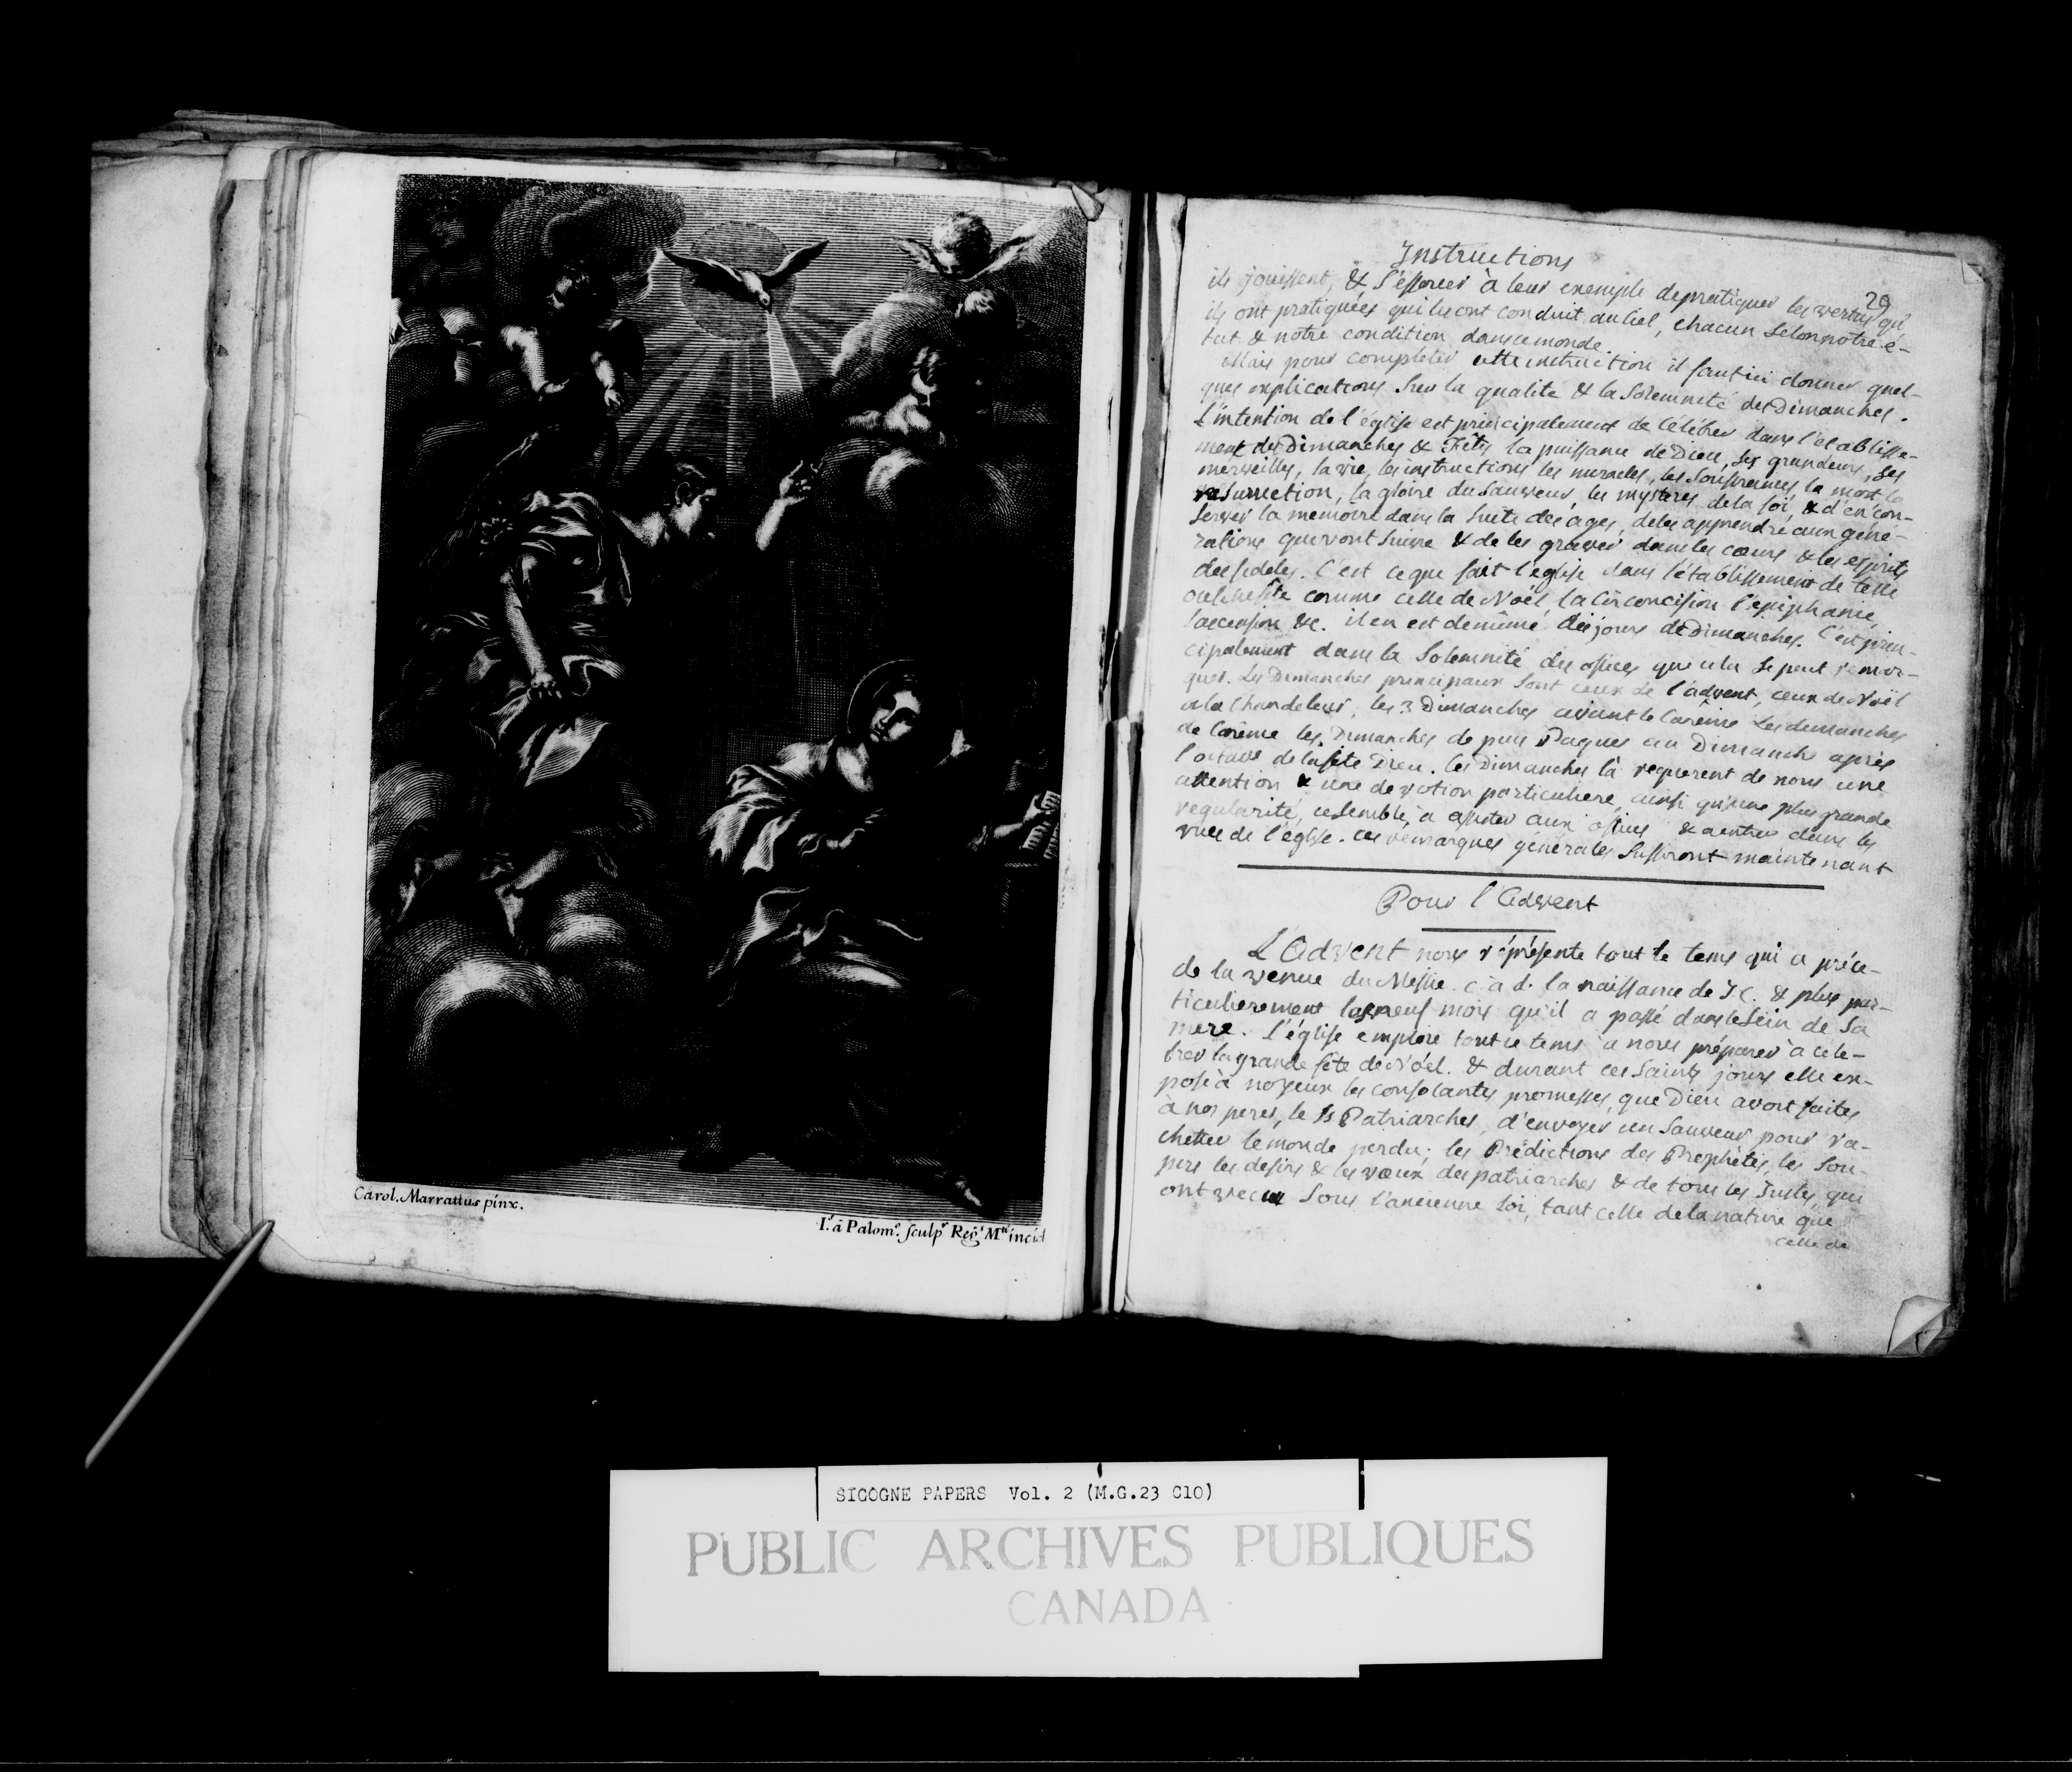 Carol. Marrattus pinx.
I.s à Palom.o sculp.r Reg.s M.ti incid
Instructions
29
ils jouissent, & s'efforcer à leur exemple de pratiquer les vertus qu'
ils ont pratiquées qui les ont conduit au Ciel, chacun selon notre é-
tat & notre condition dans ce monde.
Mais pour completer cette instruction il faut ici donner quel-
ques explications sur la qualité & la solemnité des Dimanches.
L'intention de l'église est principalement de célébrer dans l'établisse-
ment des Dimanches & Fêtes la puissance de Dieu, ses grandeurs, ses
merveilles, la vie, les instructions les miracles, les souffrances la mort la
resurrection, la gloire du Sauveur, les mysteres de la foi, & d'en con-
server la memoire dans la suite des âges, de les apprendre aux géné-
rations qui vont suivre & de les graver dans les cœurs & les esprits
des fideles. C'est ce que fait l'église dans l'établissement de telle
ou telle fête comme celle de Noël, la Circoncision l'épiphanie,
l'ascension &c. il en est de même des jours de Dimanches. C'est prin-
cipalement dans la solemnité des offices que cela se peut remar-
quer. Les Dimanches principaux sont ceux de l'advent, ceux de Noël
à la Chandeleur, les 3 Dimanches avant le Carême Les dimanches
de Carême les Dimanches de puis Paques au Dimanche après
l'octave de la fête Dieu. Ces Dimanches là requerent de nous une
attention & une devotion particuliere, ainsi qu'une plus grande
regularité, ce semble, à assister aux offices & a entrer dans les
vues de l'église. Ces remarques générales suffiront maintenant
Pour l'Advent
L'Advent nous réprésente tout le tems qui a précé-
dé la venue du Messie. c. à d. la naissance de J C. & plus par-
ticulierement les neuf mois qu'il a passé dans le sein de sa
mere. L'église emploie tout ce tems à nous préparer à célé-
brer la grande fête de Noël. & durant ces saints jours elle ex-
pose à nos yeux les consolantes promesses, que Dieu avoit faites
à nos peres, le Sts Patriarches, d'envoyer un Sauveur pour ra-
cheter le monde perdu; les Prédictions des Prophètes, les sou-
pirs les desirs & les vœux des patriarches & de tous les Justes, qui
ont vecu sous l'ancienne Loi, tant celle de la nature que
celle de
SIGOGNE PAPERS Vol. 2 (M.G.23 C10)
PUBLIC ARCHIVES PUBLIQUES
CANADA